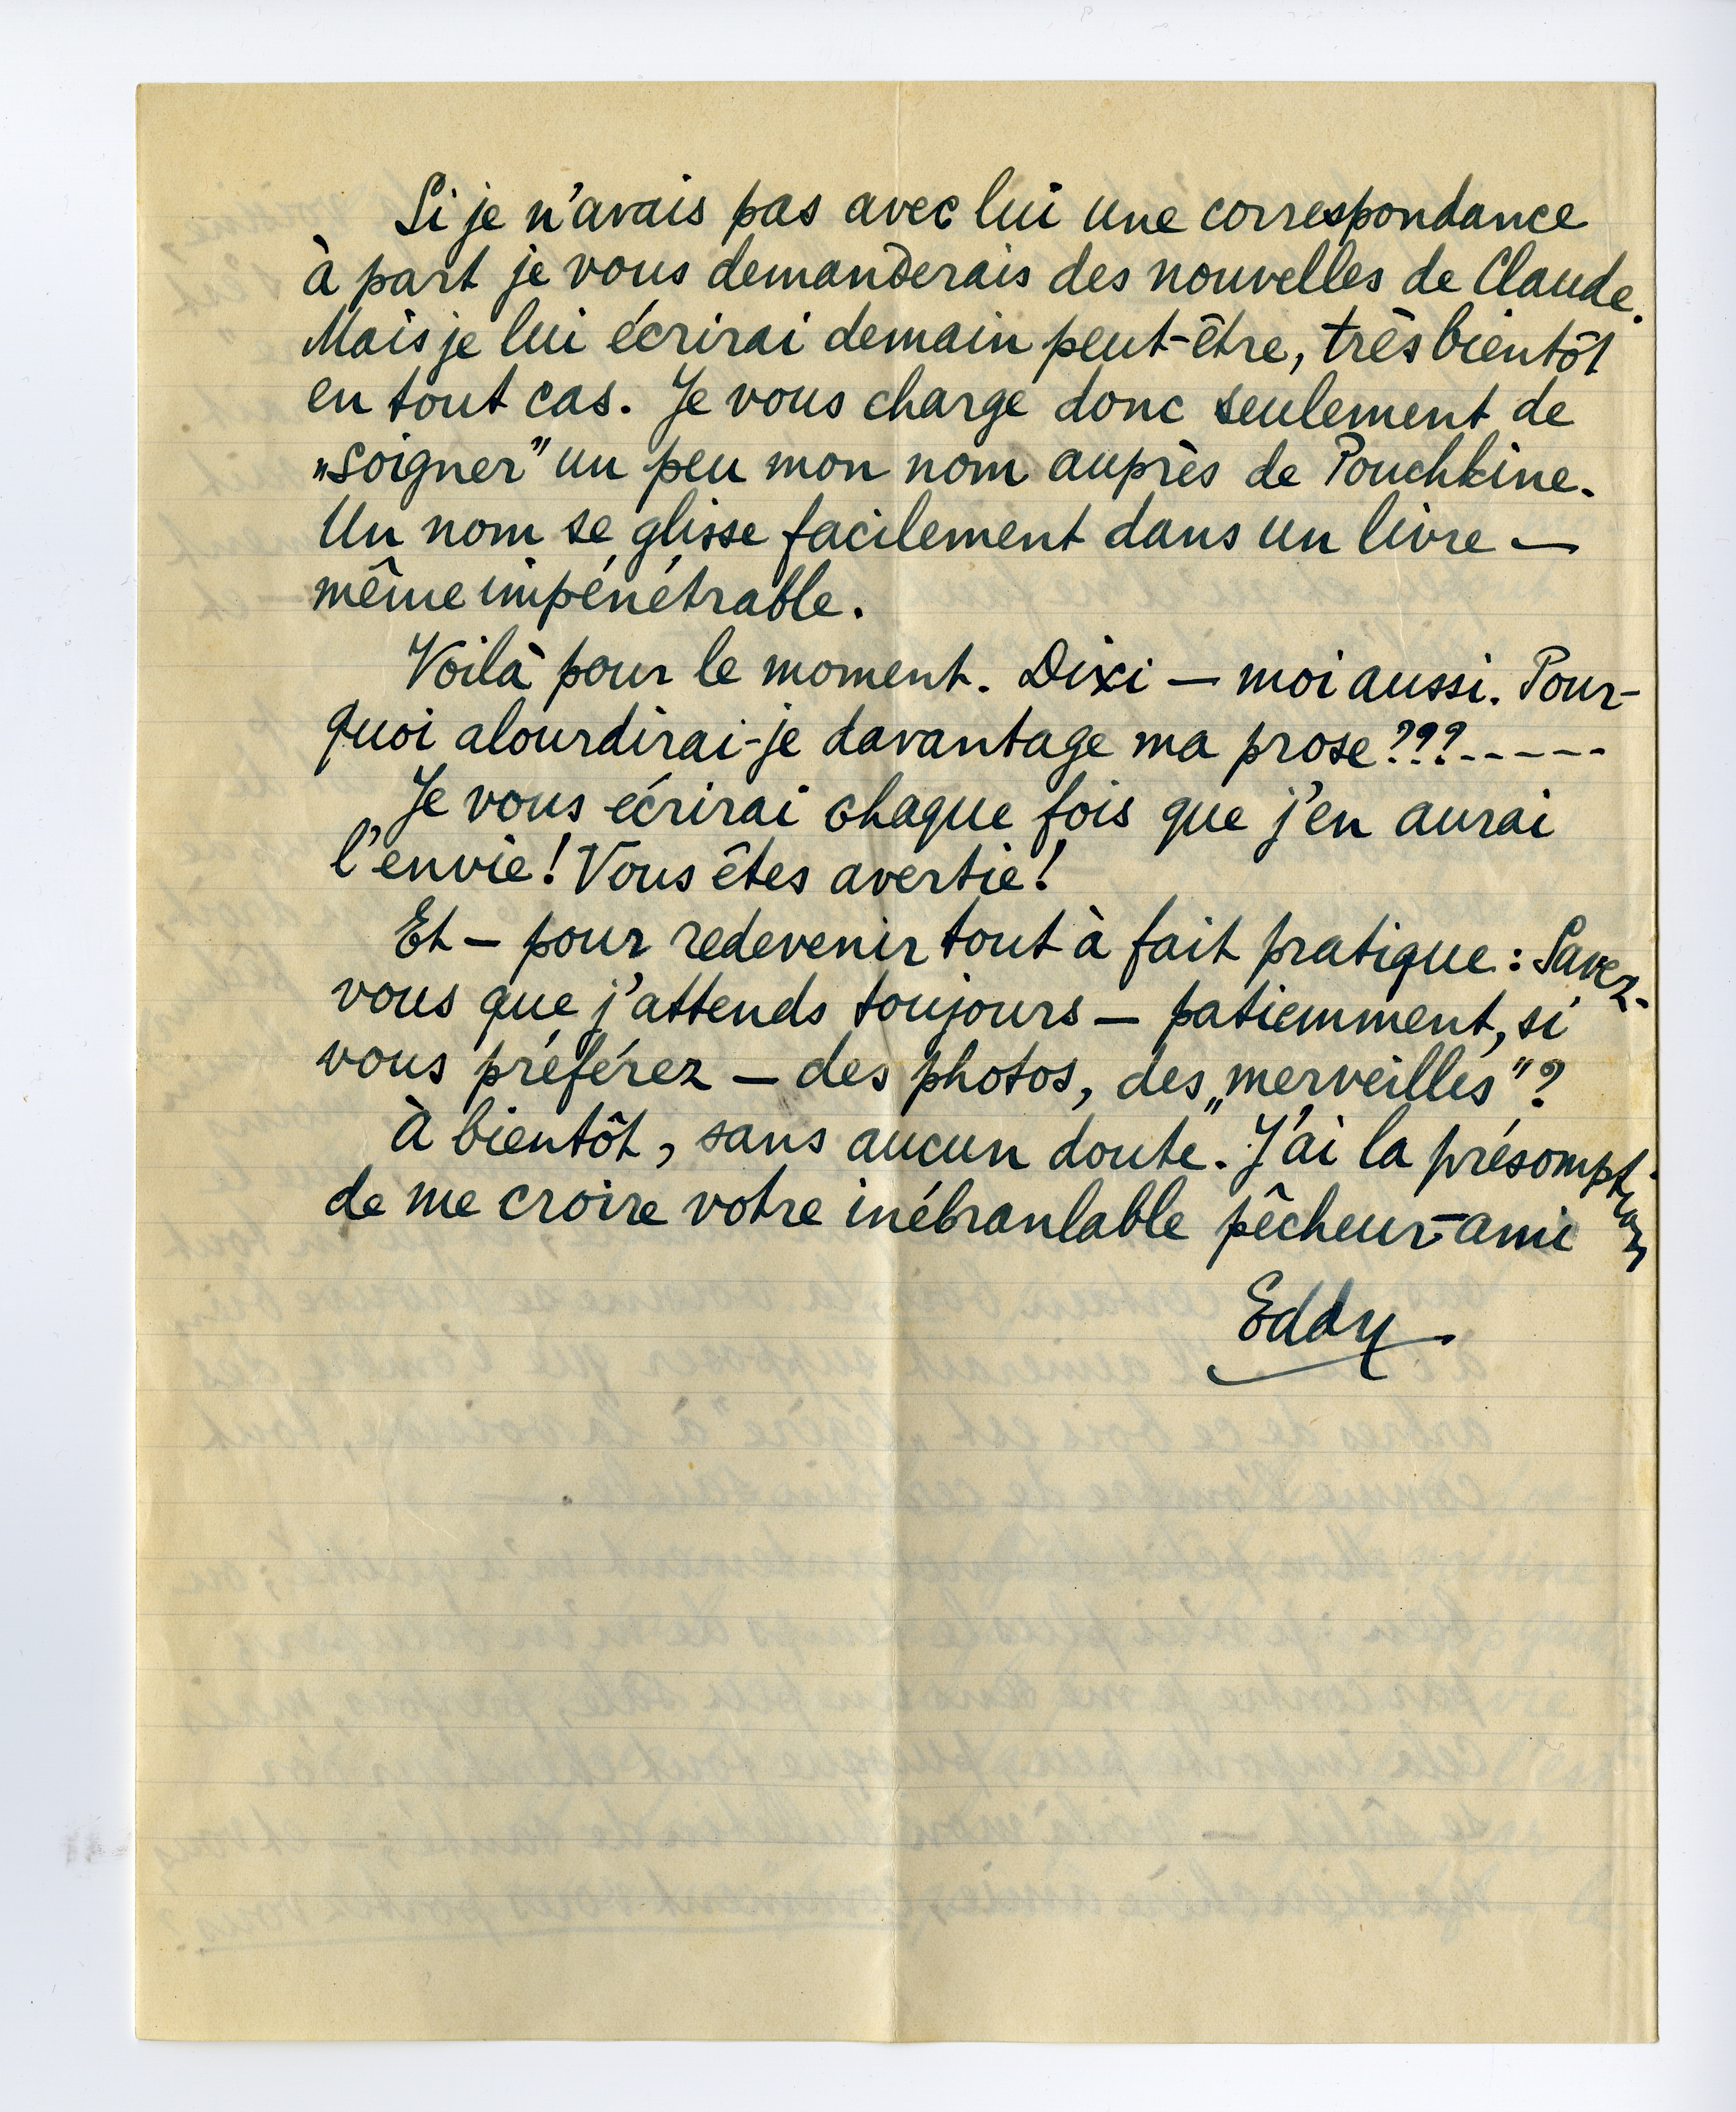 Si je n'avais pas avec lui une correspondance
à part je vous demanderais des nouvelles de Claude.
Mais je lui écrirai demain peut-être, très bientôt
en tout cas. Je vous charge donc seulement de
„soigner” un peu mon nom auprès de Pouchkine.
Un nom se glisse facilement dans un livre —
même impénétrable.
Voilà pour le moment. Dixi — moi aussi. Pour-
quoi alourdirai-je davantage ma prose???-----
Je vous écrirai chaque fois que j'en aurai
l'envie! Vous êtes avertie!
Et — pour redevenir tout à fait pratique: Savez-
vous que j'attends toujours — patiemment, si
vous préférez — des photos, des „merveilles”?
À bientôt, sans aucun doute. J'ai la présomption
de me croire votre inébranlable pêcheur-ami
Eddy